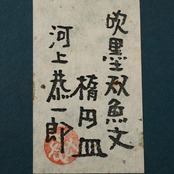 吹墨双魚文
楕円皿
河上恭一郎